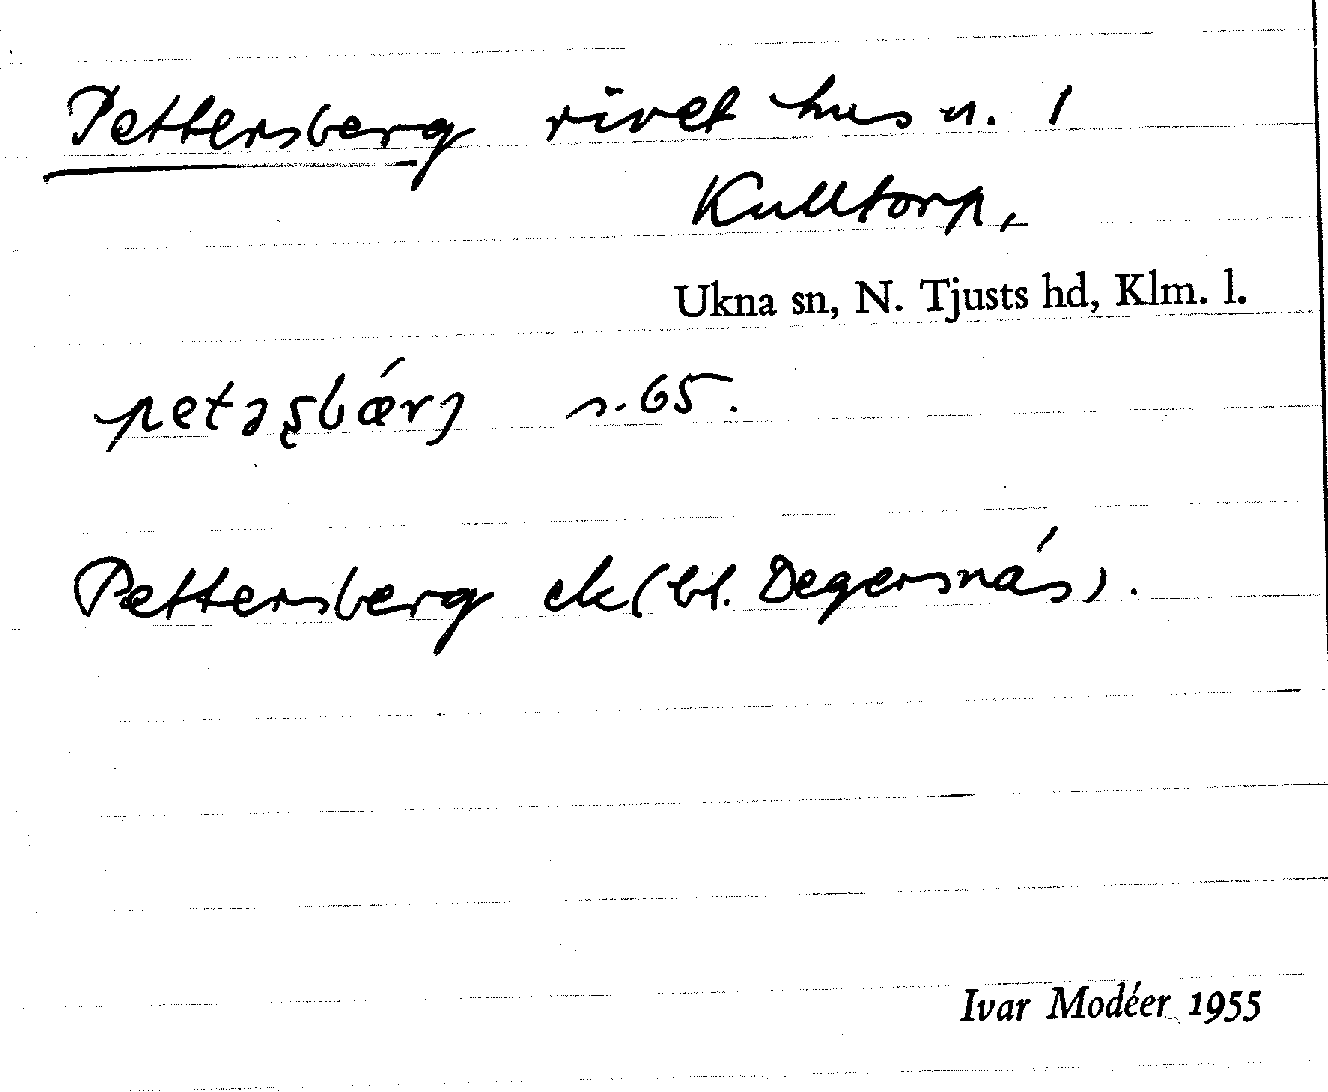 Pettersberg rivet hus u. 1
Kulltorp,
Ukna sn, N. Tjusts hd, Klm. l.
s. 65.
Pettersberg ek (bl. Degersnäs).
Ivar Modéer 1955